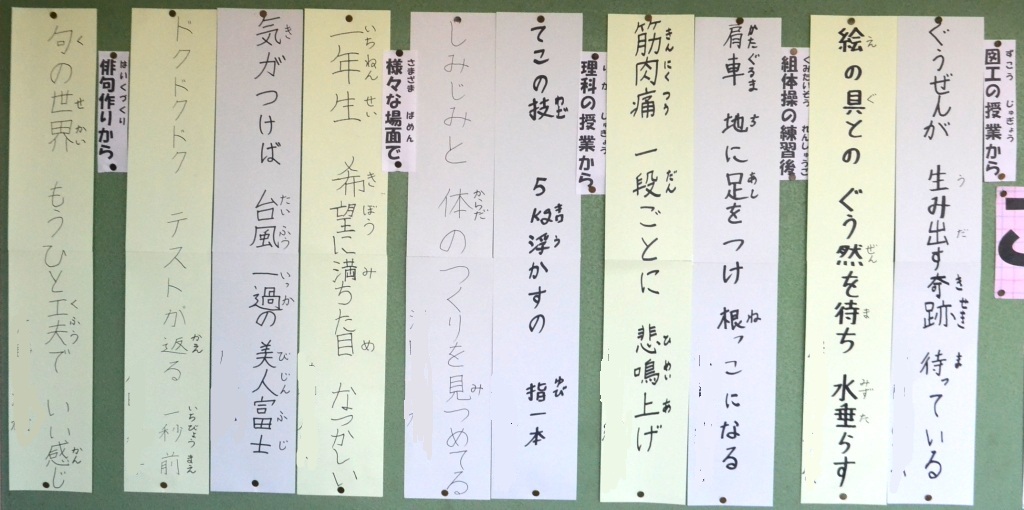 図工の授業から
ぐうぜんが 生み出す奇跡 待っている
絵の具との ぐう然を待ち 水垂らす
組体操の練習後
肩車 地に足をつけ 根っこになる
筋肉痛 一段ごとに 悲鳴上げ
理科の授業から
てこの技 5kg浮かすの 指一本
しみじみと 体のつくりを見つめてる
様々な場面で
一年生 希望に満ちた目 なつかしい
気がつけば 台風一過の 美人富士
ドクドクドク テストが返る 一秒前
俳句作りから
句の世界 もうひと工夫で いい感じ